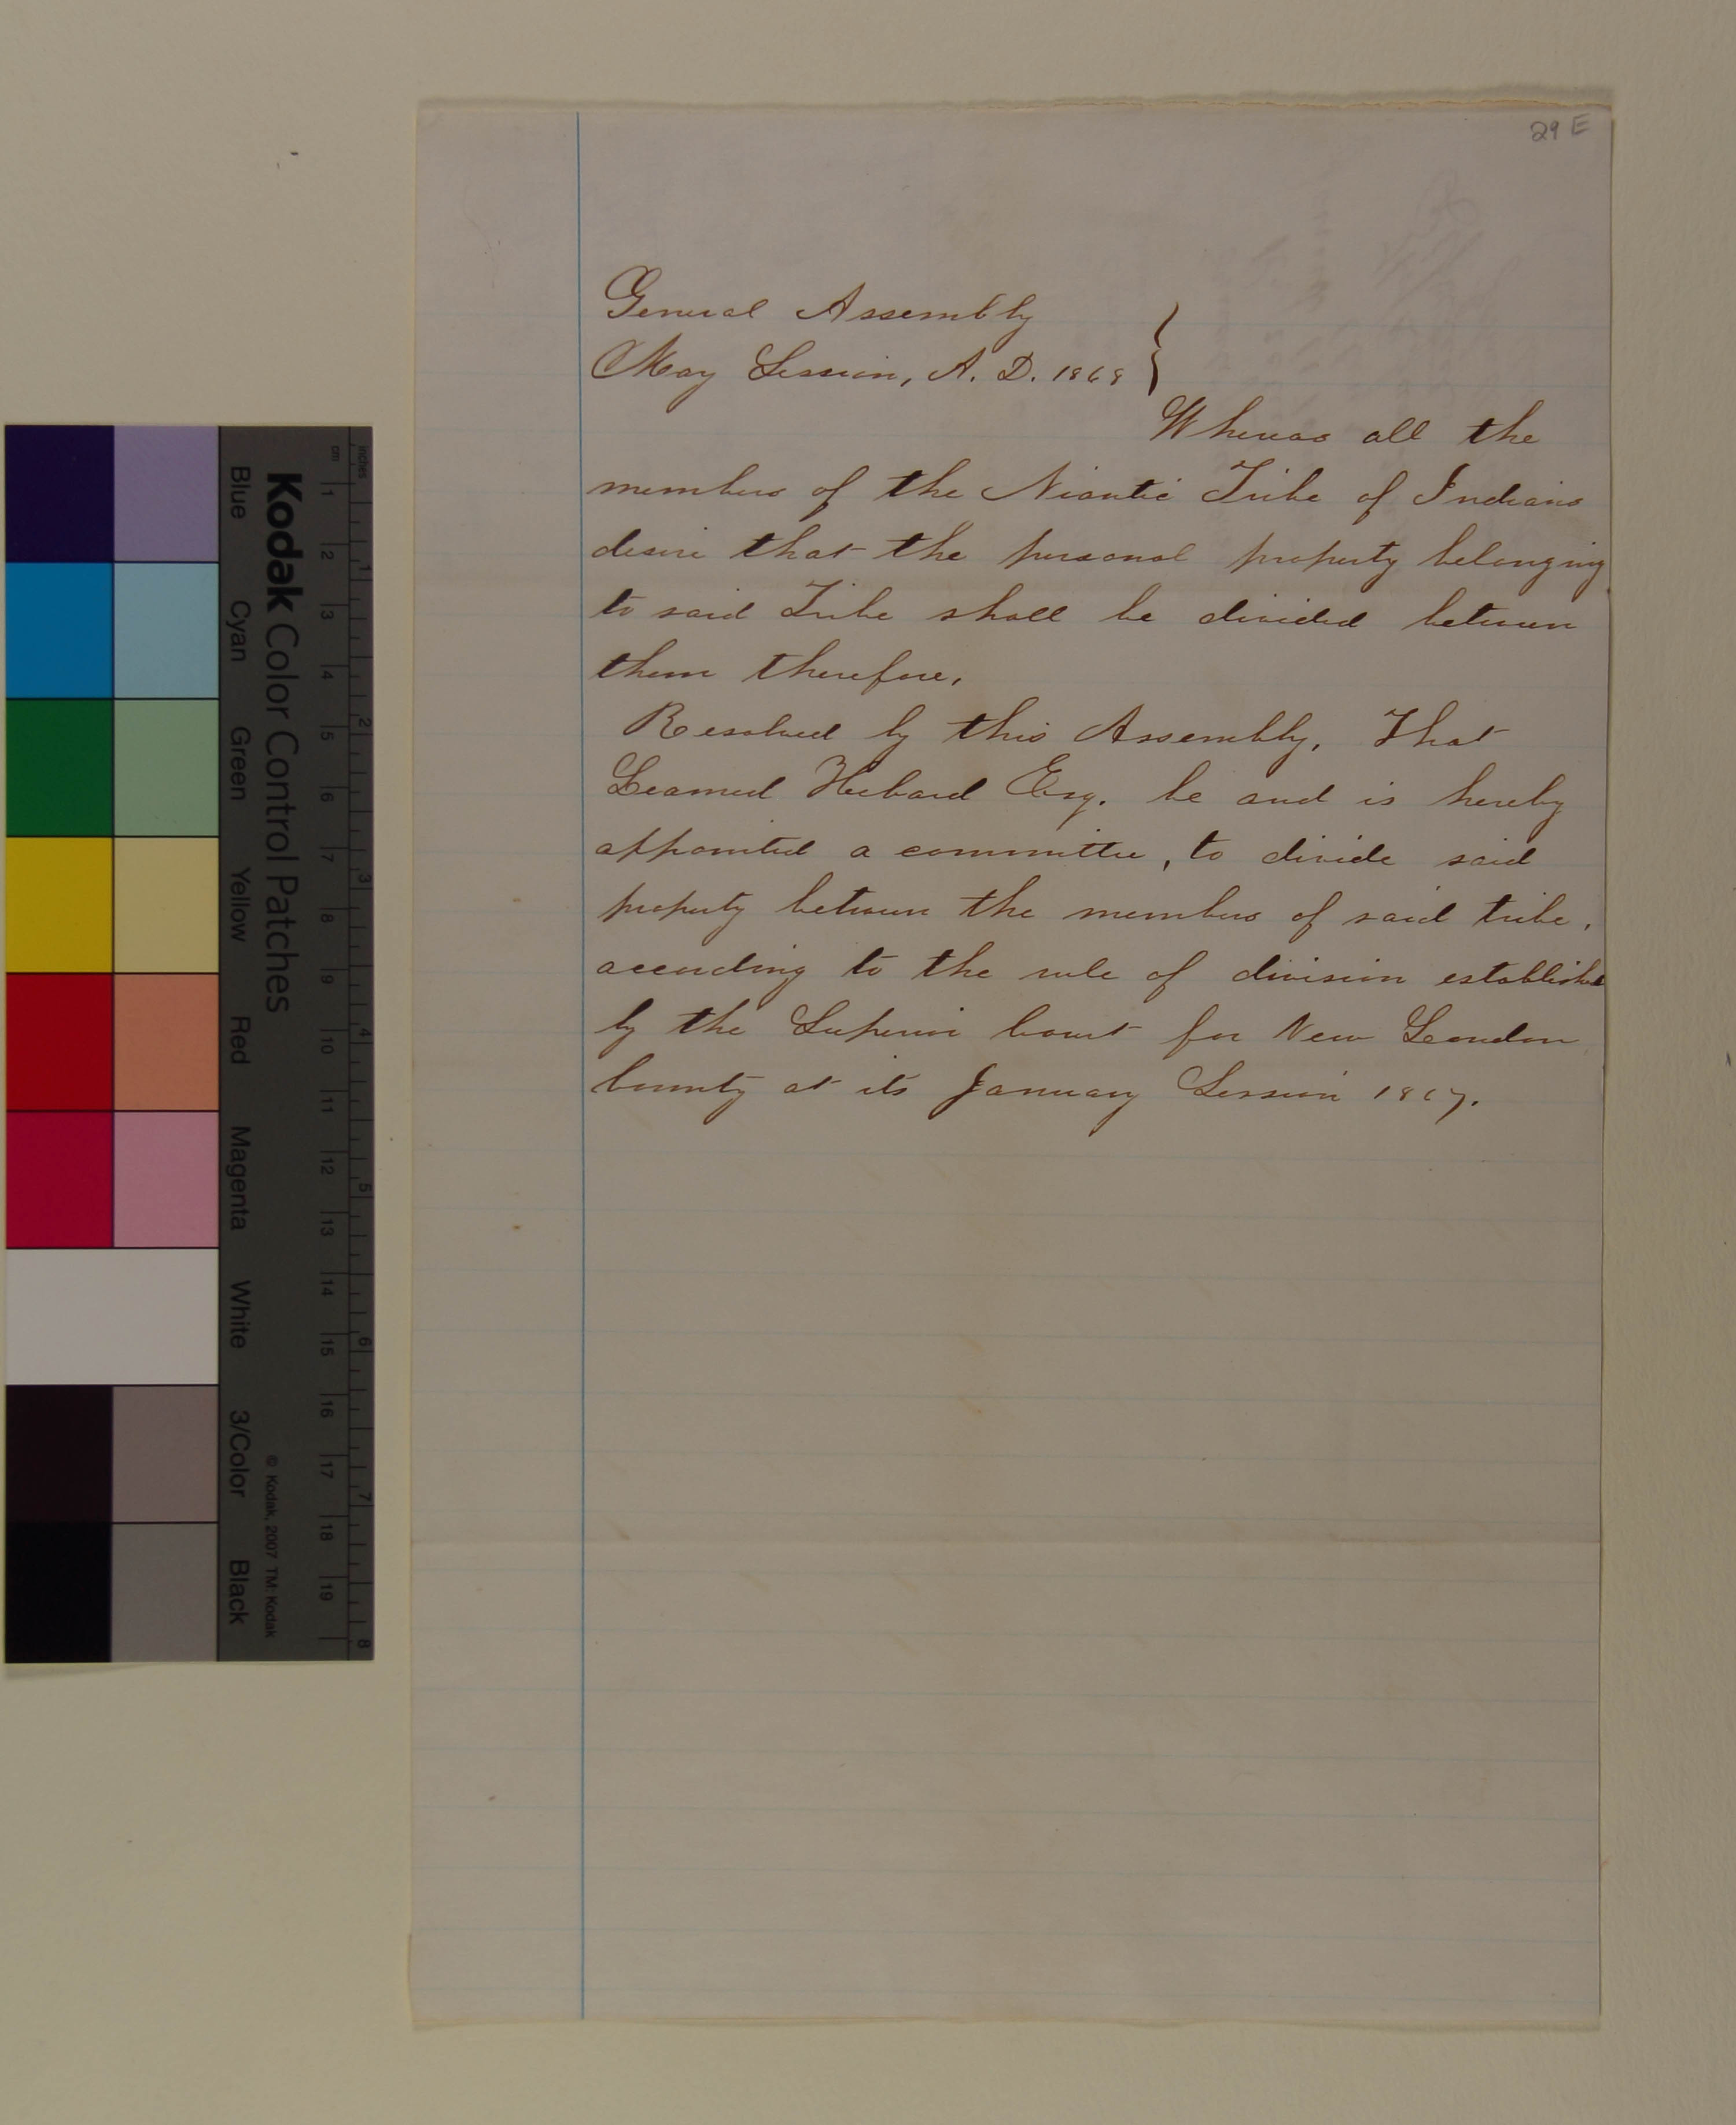 29 E
General Assembly
May Session, A. D. 1868 }
Whereas all the
members of the Niantic Tribe of Indians
desire that the personal property belonging
to said Tribe shall be divided between
them therefore,
Resolved by this Assembly, That
Learned Hebard Esq. be and is hereby
appointed a committee, to divide said
property between the members of said tribe,
according to the rule of division established
by the Superior Court for New London
County at its January Session 1867.
Kodak Color Control Patches
Blue Cyan Green Yellow Red Magenta White 3/Color Black
© Kodak, 2007 TM: Kodak
cm 1 2 3 4 5 6 7 8 9 10 11 12 13 14 15 16 17 18 19
inches 1 2 3 4 5 6 7 8